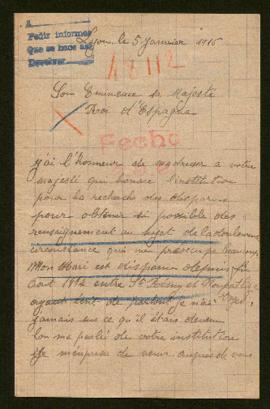 A
Pedir informes
Que se hace así
Devolver
Lyon le 5 Janvier 1916
48112
Son Eminence sa Majesté
Roi d'Espagne
Fecho
j'ai l'honneur de m'adresser a votre
majesté qui honore l'institution
pour la recherche des disparus
pour obtenir si possible des
renseignement au sujet de la douloureuse
circonstance qui me préoccupe beaucoup
Mon Mari est disparu depuis fin
Aout 1914 entre St
ayant écrit de partout je n'ai
jamais su ce qu'il étais devenu
l'on ma parlé de votre institution
je de venir auprès de vous